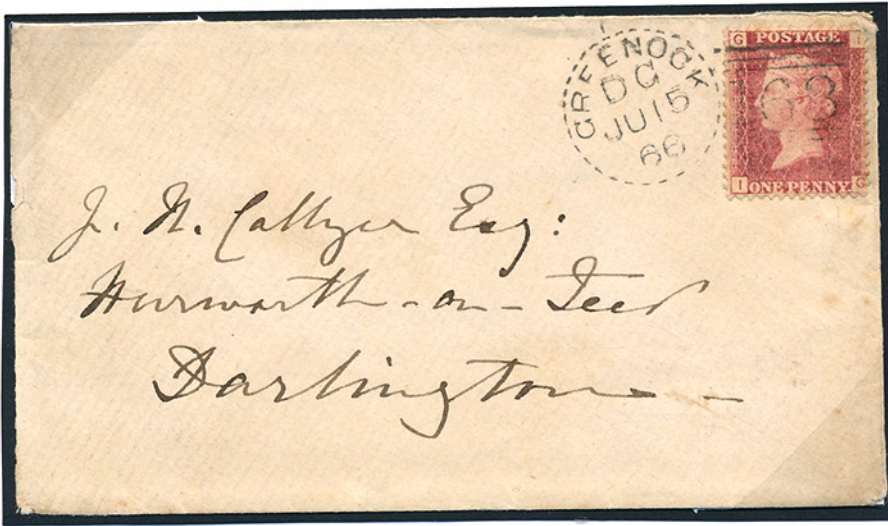 GREENOCK
DC
JU15
66
G POSTAGE I
163
I ONE PENNY G
J. N. Esq:
Hurworth-on-Tees
Darlington